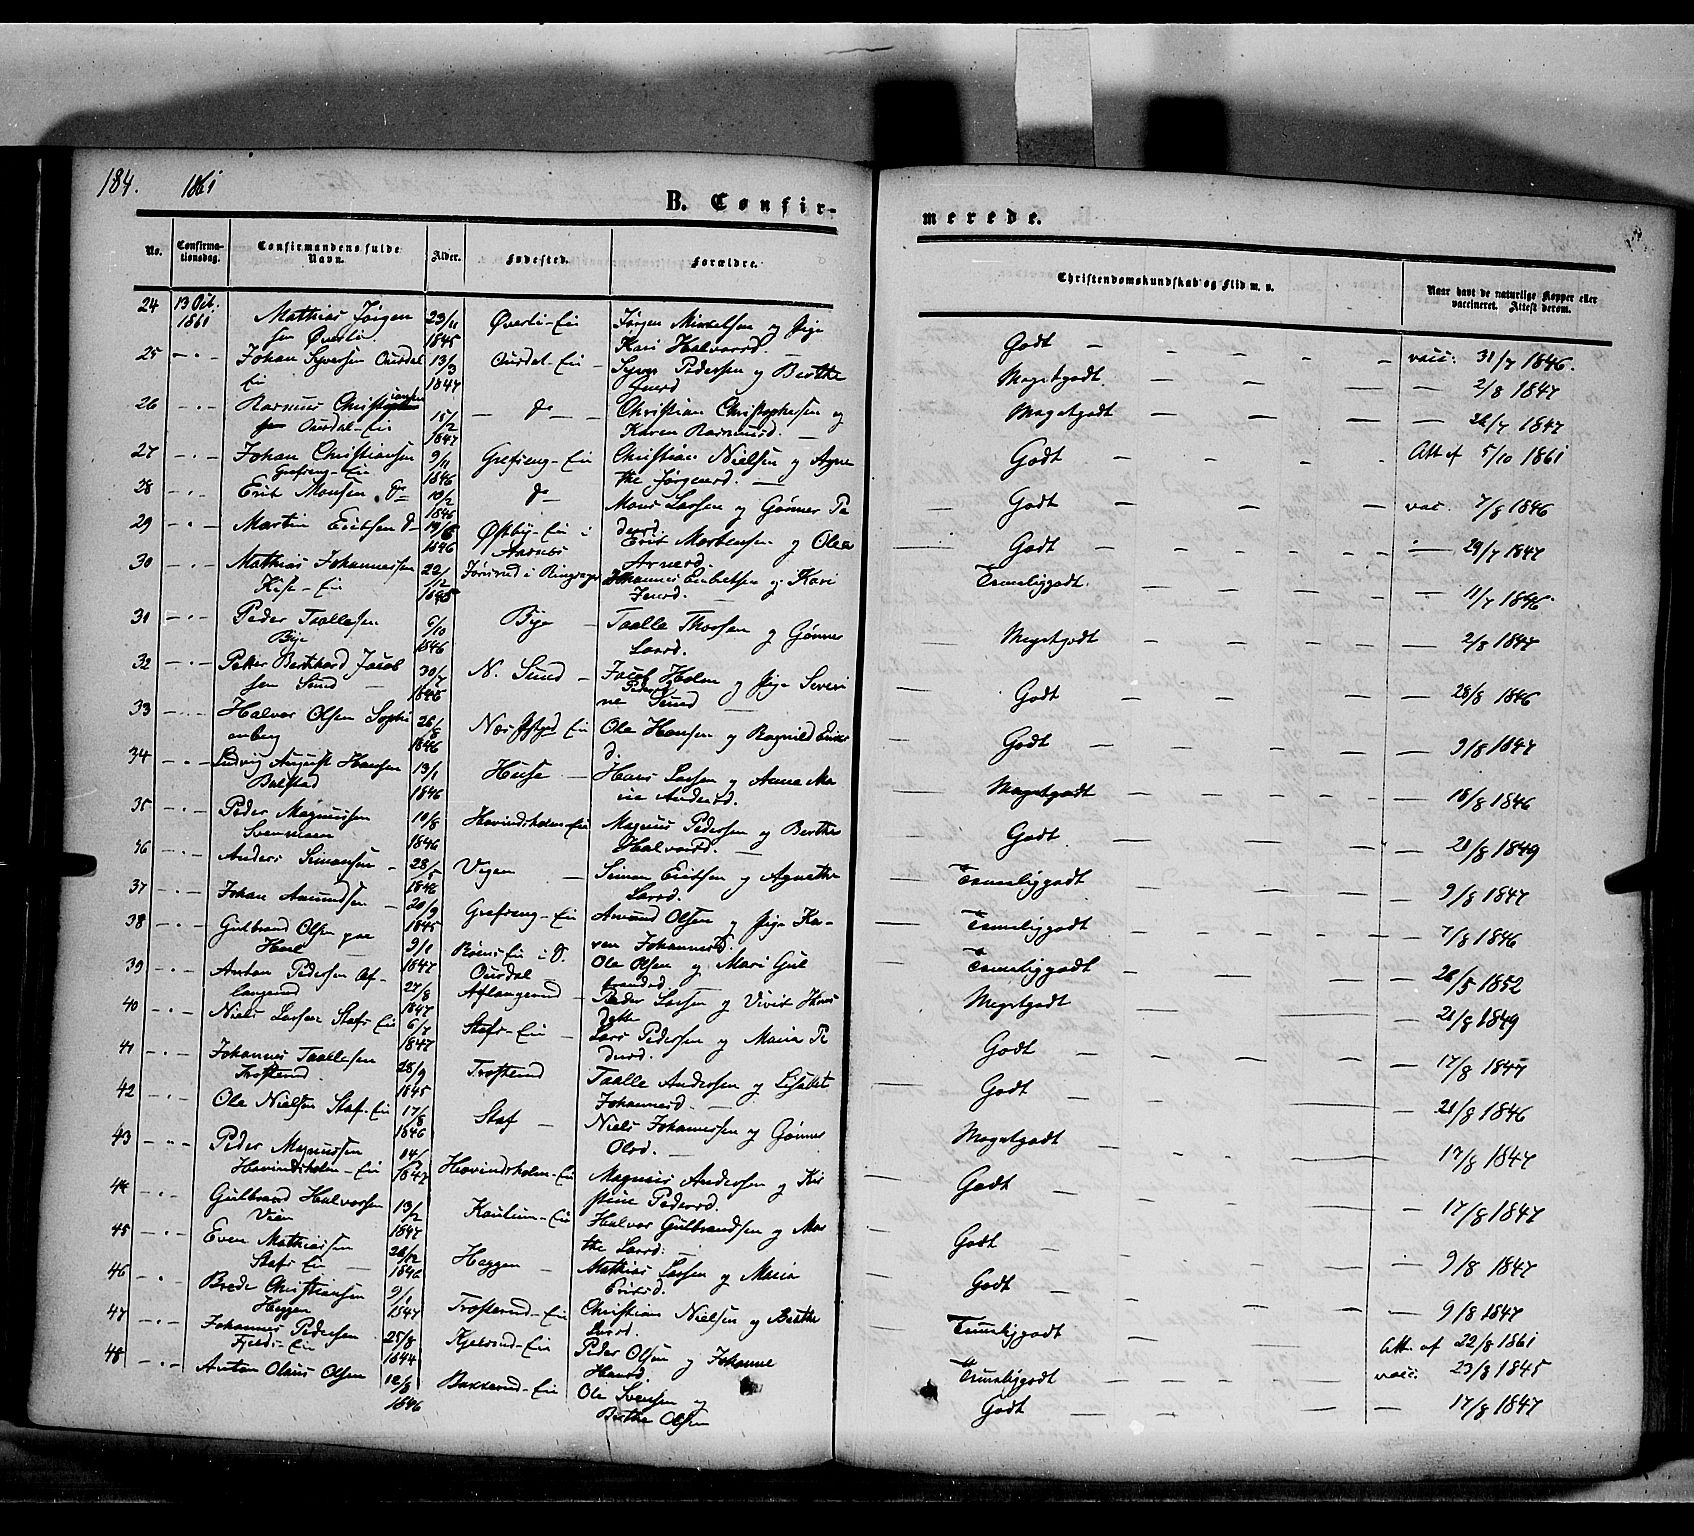 184. 1861
B. Confir-
merede.
No. Confirma-tionsdag. Confirmandens fulde Navn. Alder. Fødested. Forældre.
Christendomskundskab og Flid m. v.
Naar havt de naturlige Kopper eller vaccineret. Attest derom.
24 13 Oct. 1861 Mathias Jörgensen Överli 23/11 1845 Överli-Eie Jörgen Mikkelsen og Pige Kari Halvorsd. Godt vacc. 31/7 1846.
25 Johan Syversen Ourdal Eie 13/3 1847 Ourdal-Eie Syver Pedersen og Berthe Meget godt. 2/8 1847
26 Rasmus Christiansen Ourdal-Eie 15/2 1847 do Christian Christophersen og Karen Rasmusd. Megetgodt 26/7 1847
27 Johan Christiansen Grefseng-Eie 9/11 1846 Grefseng-Eie Christian Nielsen og Agnethe Jörgensd. Godt Att. af 5/10 1861
28 Erik Monsen do 10/2 1846 do Mons Larsen og Gønner Pedersd. Godt vac. 7/8 1846
29 Martin Eriksen do 1846 Østby-Eie i Erik Mortensen og Olea Arnesd. Godt 29/7 1847
30 Mathias Johannessen Hise-Eie 22/12 1845 i Ringsager Johannes Engebretsen og Kari Jensd. Temmeliggodt. 11/7 1846
31 Peder Taallesen Bye 6/10 1846 Bye Taalle Thorsen og Gønner Larsd. Megetgodt 2/8 1847
32 Petter Bernhard Jacobsen Sund 30/7 1845 N. Sund Jacob Holm og Pige Severine Pedersd. Sund Godt 28/8 1846
33 Halvor Olsen Sophienberg 26/8 1846 Eie Ole Hansen og Ragnild Eriksd. Godt 9/8 1847
34 Ludvig August Hansen Balstad 13/1 1846 Huse Hans Larsen og Anne Marie Andersd. Megetgodt 18/8 1846
35 Peder Magnussen Svenskmoen 10/8 1846 Hovindsholm-Eie Magnus Pedersen og Berthe Halvorsd. Godt 21/8 1849
36 Anders Simonsen 28/5 1846 Vigen Simen Eriksen og Agnethe Larsd. Temmeliggodt 9/8 1847
37 Johan Amundsen 20/9 1845 Grefseng-Eie Amund Olsen og Pige Karen Johannesd. Temmeliggodt 7/8 1846
38 Gulbrand Olsen paa 9/1 1847 Eie i S. Ourdal Ole Olsen og Mari Gulbrandsd. Temmeliggodt 26/5 1852
39 Anton Pedersen Aflangerud 27/8 1847 Aflangerud Peder Larsen og Vivit Hansdatter Megetgodt 21/8 1849
40 Niels Larsen Stafs-Eie 6/7 1847 Stafs-Eie Lars Pedersen og Maria Pedersd. Godt 17/8 1847
41 Johannes Taallesen Trosterud. 28/9 1845 Trosterud Taalle Andersen og Lisabet Johannesd. Godt 21/8 1846
42 Ole Nielsen Stafs-Eie 17/8 1846 Staf Niels Johannessen og Gønner Olsd. Megetgodt 17/8 1847
43 Peder Magnussen Hovindsholm-Eie 14/ 1847 Hovindsholm-Eie Magnus Andersen og Kirstine Pedersd. Godt 17/8 1847
44 Gulbrand Halvorsen Vien 13/2 1847 Kontum-Eie Halvor Gulbrandsen og Marthe Larsd. Godt 9/8 1847
45 Even Mathiassen Stafs Eie 26/12 1846 Heggen Mathias Larsen og Maria Eriksd. Godt 9/8 1847
46 Brede Christiansen Heggen 9/1 1847 Trosterud-Eie Christian Nielsen og Berthe Temmeliggodt Att. af 22/8 1861
47 Johannes Pedersen Fjelds-Eie 25/8 1844 Kjelsrud-Eie Peder Olsen og Johanne Hansd. Temmeliggodt vacc. 23/8 1845
48 Anton Olaus Olsen 12/8 1846 Bakkerud-Eie Ole Svensen og Berthe Olsen Godt 17/8 1847